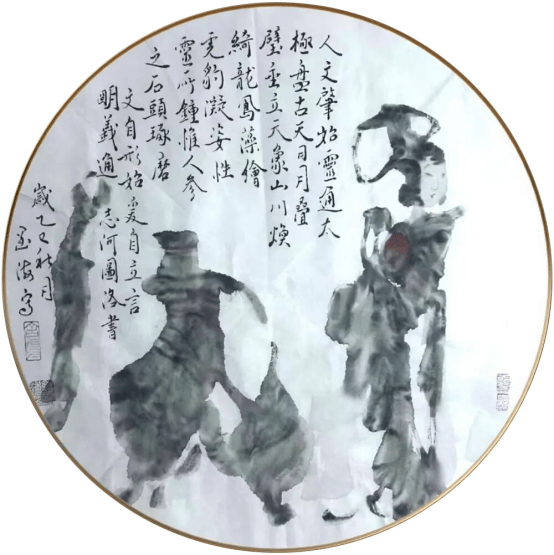 人文肇始靈通太
極盤古天日月疊
璧垂立天象山川煥
綺龍鳳藻繪
虎豹凝姿性
靈所鐘惟人參
之石頭琢磨
文自形始爰自立言
明義通志河圖洛書
歲乙巳秋月
墨海寫